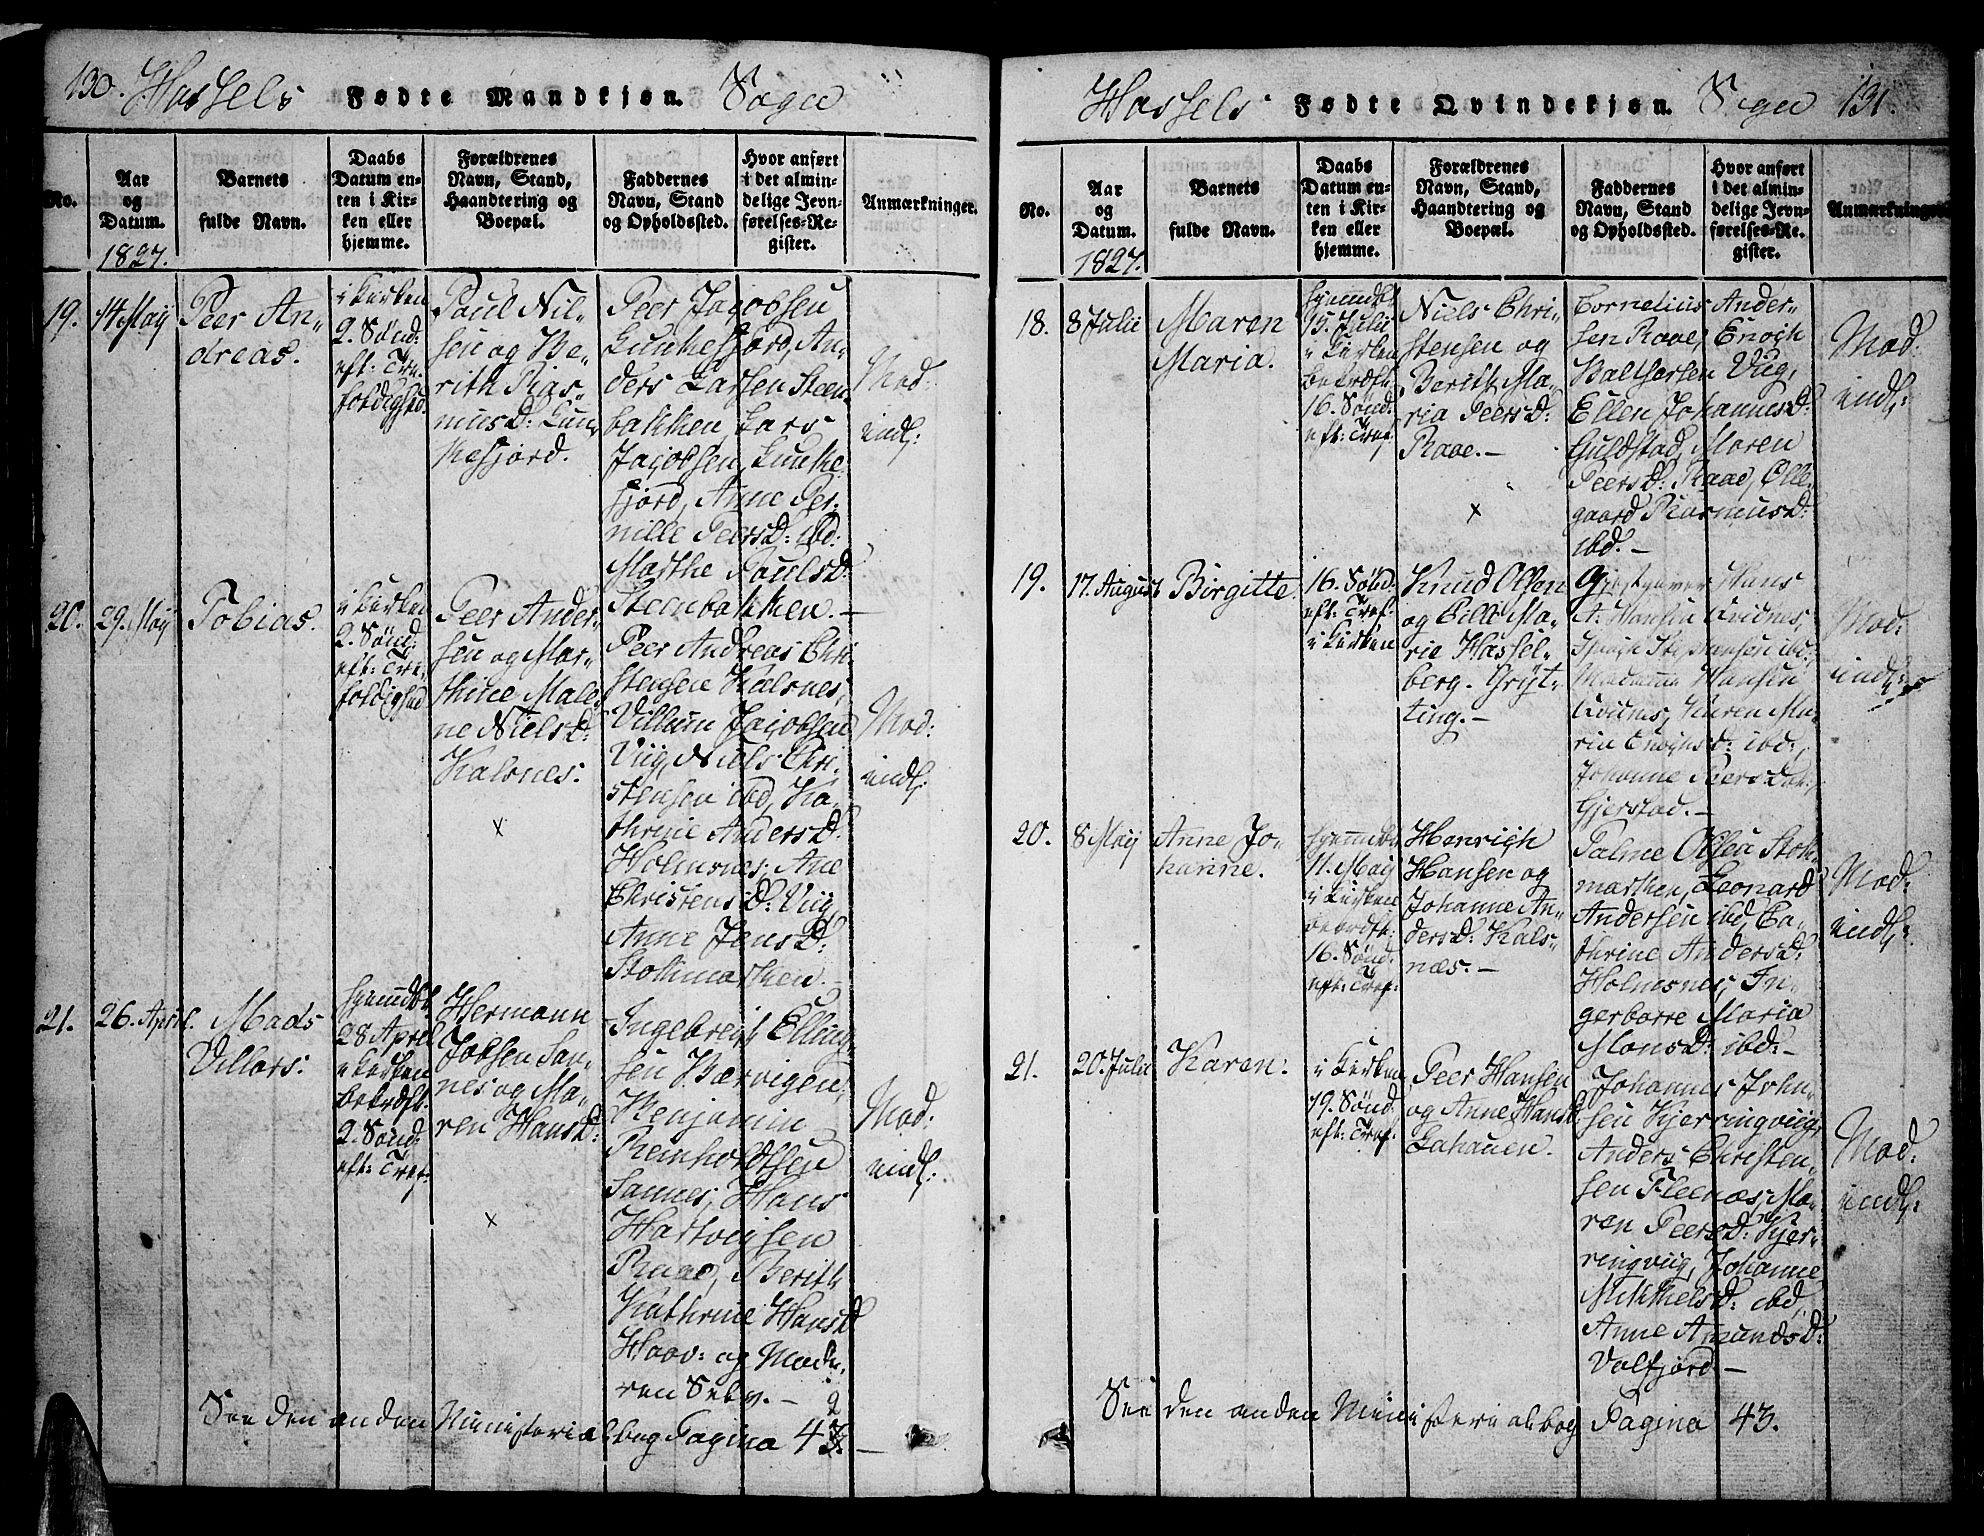 130. Hassels Fødte Mandkjøn. Sogn
No.
Aar
og
Datum.
1827.
Barnets
fulde Navn.
Daabs
Datum en-
ten i Kir-
ken eller
hjemme.
Forældrenes
Navn, Stand,
Haandtering og
Boepæl.
Faddernes
Navn, Stand
og Opholdssted.
Hvor anført
i det almin-
delige Jevn-
førelses-Re-
gister.
Anmærkninger.
19.
14 Maij
Peer An-
dreas.
i Kirken
2. Sönd:
eft: Tre-
foldighed.
Paul Nil-
sen og Be-
rith Ras-
musD: Lun-
kefjord.
Peer Jacobsen
Lunkefjord, An-
ders Larsen Steen-
bakken, Lars
Jacobsen Lunke-
fjord, Anne Per-
nille PeersD: ibd:
Marthe PoulsD:
Steenbakken. –
Mod:
indl:
20.
29. Maij
Tobias.
i Kirken
2. Sönd:
eft: Tre-
foldighed
Peer Ander-
sen og Mar-
thine Male-
ne NielsD:
Kalsnes.
x
Peer Andreas Chri-
stensen Kalsnes,
Villum Jacobsen
Viig, Niels Chri-
stensen ibd, Ka-
thrine AndersD:
Holmsnes, Ane
ChristensD: Viig,
Anne JensD:
Stokmarken. –
Mod:
indl:
21.
26. April.
Mads
Vilhars:
hjemdbt
28 April
i Kirken
bekræft.
2. Sönd:
eft: Tref:
Hermann
Jobsen San-
nes og Ma-
ren HansD:
x
Ingebregt Elling-
sen Bærvigen,
Benjamin
Reinholdtsen
Sannes, Hans
Hartvigsen
Raae, Berith
Kathrine HansD
Haav: og Mode-
ren Selv. –
Mod:
indl:
See den anden Ministerialbog Pagina 42. –
Hassels Fødte Qvindekjøn. Sogn 131.
No.
Aar
og
Datum.
1827.
Barnets
fulde Navn.
Daabs
Datum en-
ten i Kir-
ken eller
hjemme.
Forældrenes
Navn, Stand,
Haandtering og
Boepæl.
Faddernes
Navn, Stand
og Opholdssted.
Hvor anført
i det almin-
delige Jevn-
førelses-Re-
gister.
Anmærkninger
18.
8 Julii
Maren
Maria.
hjemdbt
15. Julii
i Kirken
bekræft.
16. Sönd:
eft: Tref:
Niels Chri-
stensen og
Berith Ma-
ria PeersD:
Raae. –
x
Cornelius Ander-
sen Raae, Enoch
Balthersen Viig,
Ellen JohannisD:
Guldstad, Maren
PeersD: Raae, Olle-
gaard RasmusD:
ibd. –
Mod:
indl:
19.
17. August
Birgitte.
16. Sönd
eft: Tref.
i Kirken
Knud Olsen
og Elle Ma-
rie Hassel-
berg. Gryt-
ting. –
Gjestgiver Hans
A: Hansen Qvidnes,
ibd:
Madamme Hansen
Qvitnes, Karen Ma-
ria EnochsD: ibd:,
Johanne PeersDat:
Gjerstad. –
Mod:
indl:
20.
8 Maij
Anne Jo-
hanne.
hjemdbt
11. Maij
i Kirken
bekræft:
16. Sönd:
eft: Tref:
Henrich
Hansen og
Johanne An-
dersD: Kals-
næs. –
Palme Olsen Stok-
marken, Leonard
Andersen ibd, Ca-
thrine AndersD:
Holmesnes, In-
gerborre Maria
MonsD: ibd: –
Mod:
indl:
21.
20. Julii
Karen.
i Kirken
19. Sönd
eft: Tref:
Peer Hansen
og Anne HansD
Lahauen.
Johannes John-
sen Kjerringviig,
Anders Christen-
sen Fleenæs, Ma-
ren PeersD: Kjer-
ringviig, Johanne
MikkelsD: ibd,
Anne AmundsD:
Valfjord –
Mod:
indl:
See den anden Ministerialbog Pagina 43.